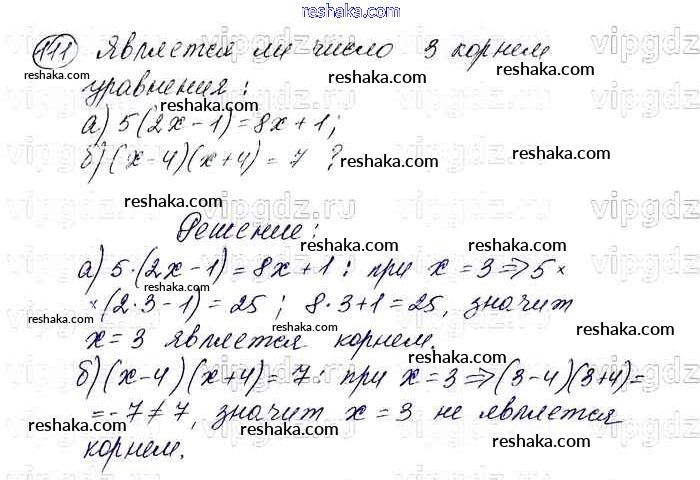 reshaka.com
111 Является ли число 3 корнем
reshaka.com reshaka.com reshaka.com
уравнения:
а) 5(2x-1)=8x+1;
reshaka.com
б) (x-4)(x+4)=7 ?
reshaka.com
reshaka.com reshaka.com
Решение:
reshaka.com reshaka.com
а) 5·(2x-1)=8x+1: при x=3⇒5×
×(2·3-1)=25; 8·3+1=25, значит
reshaka.com reshaka.com
x=3 является корнем.
reshaka.com
б) (x-4)(x+4)=7: при x=3⇒(3-4)(3+4)=
reshaka.com
=-7≠7, значит x=3 не является
reshaka.com reshaka.com
корнем.
reshaka.com
vipgdz.ru